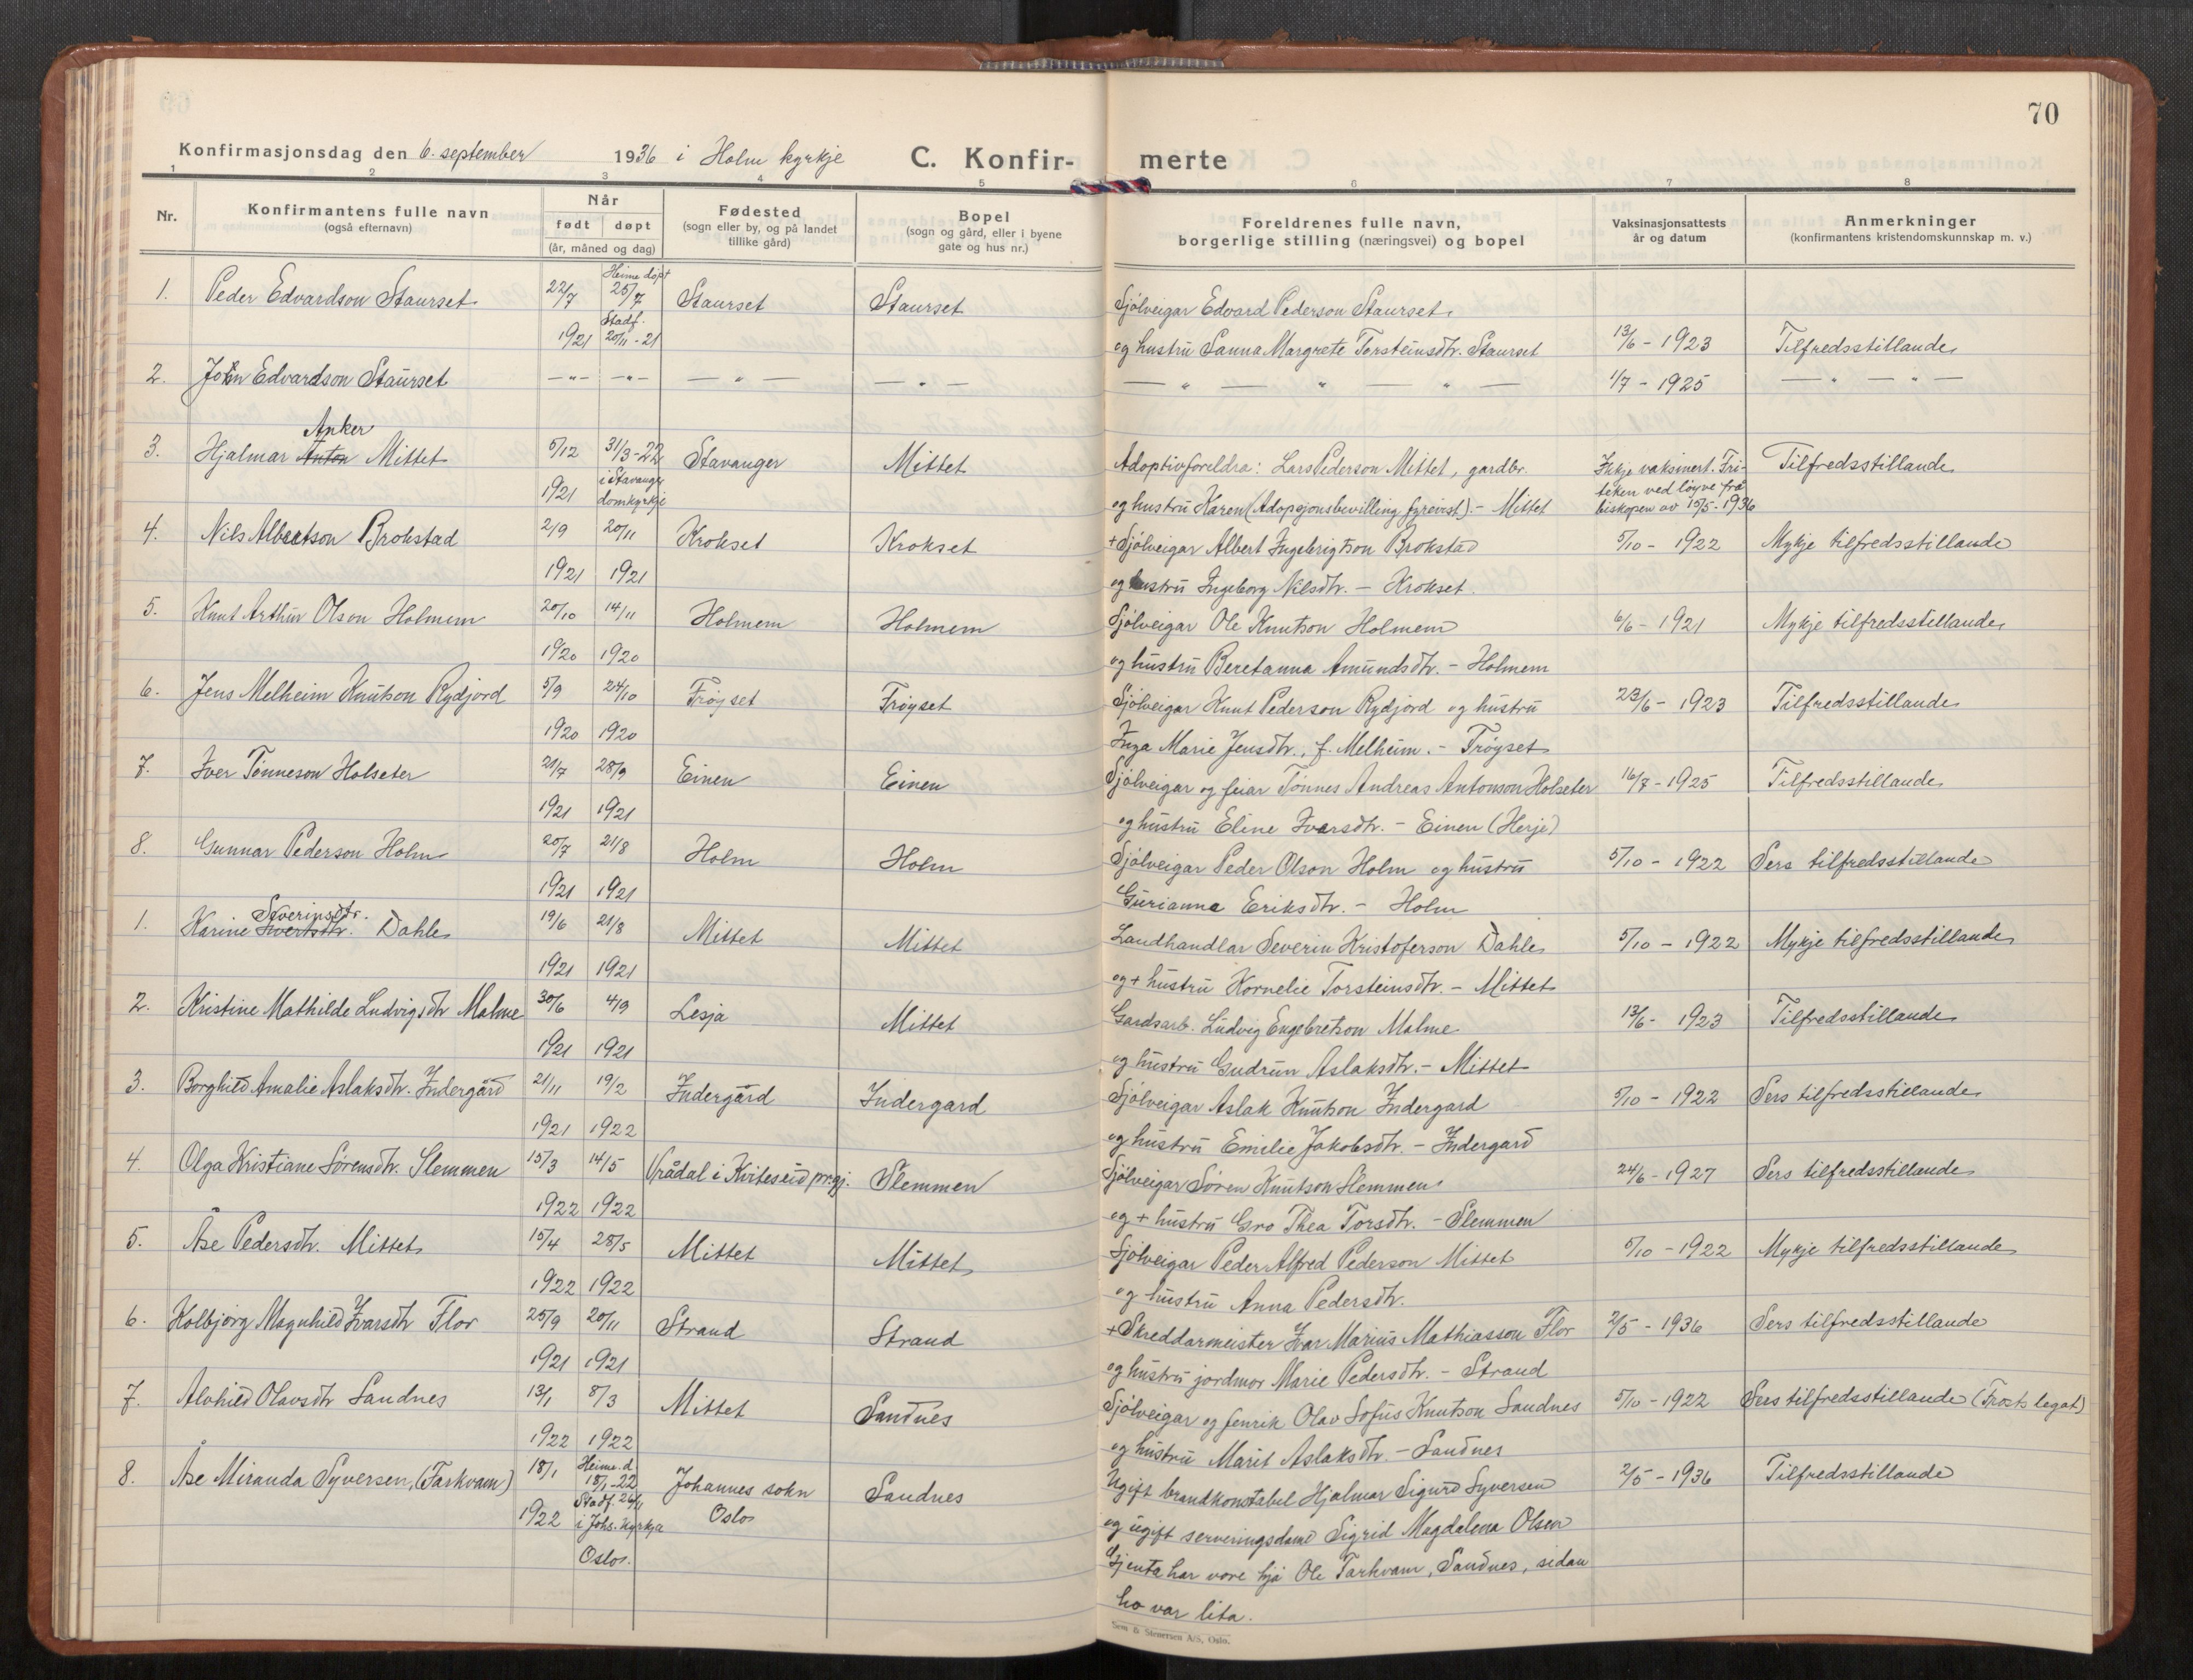 70
Konfirmasjonsdag den 6. september 1936 i Holm kyrkje C. Konfir- merte
1 2 3 4 5 6 7 8
Nr. Konfirmantens fulle navn (også efternavn) Når født døpt (år, måned og dag) Fødested (sogn eller by, og på landet tillike gård) Bopel (sogn og gård, eller i byene gate og hus nr.) Foreldrenes fulle navn, borgerlige stilling (næringsvei) og bopel Vaksinasjonsattests år og datum Anmerkninger (konfirmantens kristendomskunnskap m. v.)
Heime døpt
1. Peder Edvardson Staurset 22/7 25/7 Staurset Staurset Sjølveigar Edvard Pederson Staurset
1921 Stadf. 20/11-21 og hustru Sanna Margrete Torsteinsdtr. Staurset 13/6 - 1923 Tilfredsstillande
2. John Edvardson Staurset —"— —"— — " — — " — — " — " — " — 1/7 - 1925 — " — " —
Anker
3. Hjalmar Anton Mittet 5/12 31/3-22 Stavanger Mittet Adoptivforeldra: Lars Pederson Mittet, gardbr. Ikkje vaksinert. Fri- Tilfredsstillande
1921 i Stavanger domkyrkje og hustru Karen (Adopsjonsbevilling fyrevist).- Mittet teken ved løyve frå biskopen av 15/5-1936
4. Nils Albertson Brokstad 2/9 20/11 Krokset Krokset + Sjølveigar Albert Ingebrigtson Brokstad 5/10 - 1922 Mykje tilfredsstillande
1921 1921 og hustru Ingeborg Nilsdtr. - Krokset.
5. Knut Arthur Olson Holmem 20/10 14/11 Holmem Holmem Sjølveigar Ole Knutson Holmem 6/6 - 1921 Mykje tilfredsstillande
1920 1920 og hustru Beretanna Amundsdtr. - Holmem
6. Jens Melheim Knutson Rydjord 5/9 24/10 Frøyset Frøyset Sjølveigar Knut Pederson Rydjord og hustru 23/6 - 1923 Tilfredsstillande
1920 1920 Inga Marie Jensdtr., f. Melheim. - Frøyset
7. Iver Tønneson Holseter 21/7 28/9 Einen Einen Sjølveigar og feiar Tønnes Andreas Antonson Holseter 16/7 - 1925 Tilfredsstillande
1921 1921 og hustru Eline Ivarsdtr. - Einen (Herje)
8. Gunnar Pederson Holm 20/7 21/8 Holm Holm Sjølveigar Peder Olson Holm og hustru 5/10 - 1922 Sers tilfredsstillande
1921 1921 Gurianna Eriksdtr. - Holm
Severinsdtr.
1. Karine Ivertsdtr. Dahle 19/6 21/8 Mittet Mittet Landhandlar Severin Kristoferson Dahle 5/10 - 1922 Mykje tilfredsstillande
1921 1921 og + hustru Kornelie Torsteinsdtr. - Mittet
2. Kristine Mathilde Ludvigsdtr Malme 30/6 4/9 Lesja Mittet Gardsarb. Ludvig Engebretson Malme 13/6 - 1923 Tilfredsstillande
1921 1921 og hustru Gudrun Aslaksdtr. - Mittet
3. Borghild Amalie Aslaksdtr. Indergård 21/11 19/2 Indergård Indergard Sjølveigar Aslak Knutson Indergard 5/10 - 1922 Sers tilfredsstillande
1921 1922 og hustru Emilie Jakobsdtr. - Indergard
4. Olga Kristiane Sørensdtr. Slemmen 15/3 14/5 Vrådal i Kviteseid pr.gj. Slemmen Sjølveigar Søren Knutson Slemmen 24/6 - 1927 Sers tilfredsstillande
1922 1922 og + hustru Gro Thea Torsdtr. - Slemmen
5. Åse Pedersdtr. Mittet 15/4 28/5 Mittet Mittet Sjølveigar Peder Alfred Pederson Mittet 5/10 - 1922 Mykje tilfredsstillande
1922 1922 og hustru Anna Pedersdtr.
6. Kolbjørg Magnhild Ivarsdtr Flor 25/9 20/11 Strand Strand + Skreddarmeister Ivar Marius Mathiasson Flor 2/5 - 1936 Sers tilfredsstillande
1921 1921 og hustru jordmor Marie Pedersdtr. - Strand
7. Alvhild Olavsdtr Sandnes 13/1 5/3 Mittet Sandnes Sjølveigar og fenrik Olav Sofus Knutson Sandnes 5/10 - 1922 Sers tilfredsstillande (Frosts legat)
1922 1922 og hustru Marit Aslaksdtr. - Sandnes
8. Åse Miranda Syversen, (Tarkvam) 18/1 Heime.d. 18/1-22 Johannes sokn Sandnes Ugift brandkonstabel Hjalmar Sigurd Syversen 2/5 - 1936 Tilfredsstillande
1922 Stadf. 26/11 i Johs. Kyrkja Oslo. Oslo og ugift serveringsdame Sigrid Magdalena Olsen
Gjenta har vore hjå Ole Tarkvam, Sandnes, sidan
ho var lita.
Sem & Stenersen A/S, Oslo.